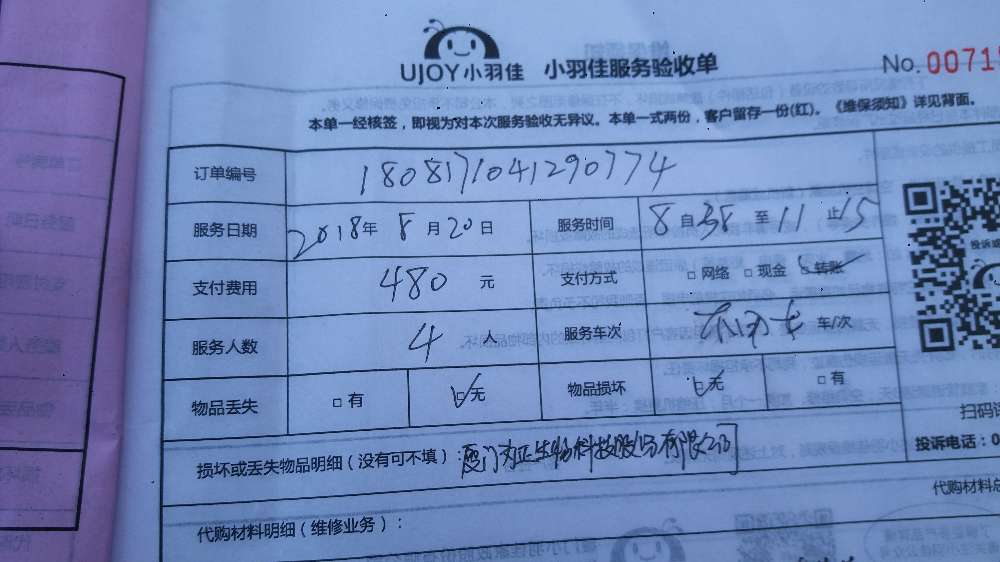 UJOY小羽佳 小羽佳服务验收单
No.00719
本单一经核签，即视为对本次服务验收无异议。本单一式两份，客户留存一份(红)。《维保须知》详见背面。
订单编号 1808171041290774
服务日期 2018年 8月20日 服务时间 8自38至11止15
支付费用 480 元 支付方式 □网络 □现金 □转账
服务人数 4 人 服务车次 车/次
物品丢失 □有 □无 物品损坏 □无 □有
损坏或丢失物品明细（没有可不填）：厦门为正生物科技股份有限公司
代购材料明细（维修业务）：
代购材料总
投诉
扫码
投诉电话：0